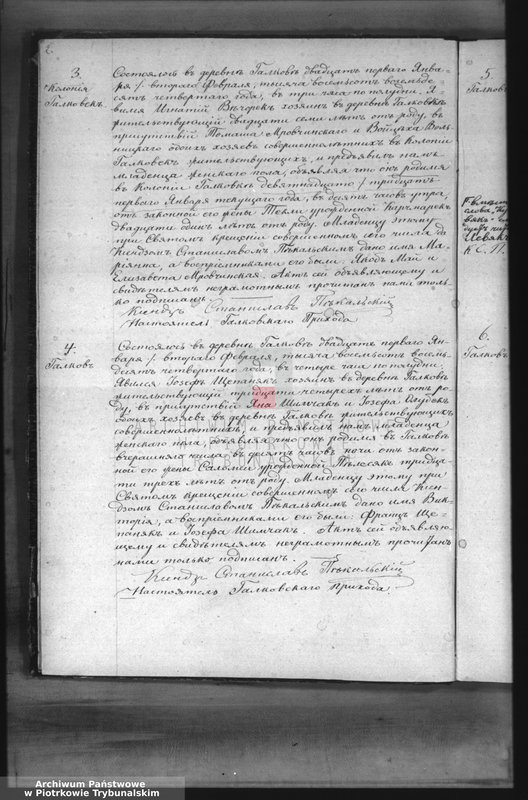 2.
3.
Колонія
Галковекъ.
Состоялось въ деревнѣ Галковѣ двадцать перваго Янва-
ря /. втораго Февраля, тысяча восемьсотъ восемьде-
сятъ четвертаго года, въ три часа по полудни. Я-
вился Игнатій хозяинъ въ деревнѣ Галковкѣ
жительствующій двадцати семи лѣтъ отъ роду, въ
присутствіи Томаша Мровчинскаго и Войцѣха Воль-
ницкаго обоихъ хозяевъ совершеннолѣтнихъ въ Колоніи
Галковекъ жительствующихъ, и предъявилъ намъ
младенца женскаго пола, объявляя что онъ родился
въ Колоніи Галковкѣ девятнадцатаго / тридцать
перваго Января текущаго года, въ десять часовъ утра
отъ законной его жены Теклы урожденной Карчмарекъ
двадцати одинъ лѣтъ отъ роду. Младенцу этому
при Святомъ крещеніи совершенномъ сего числа
Ксендзомъ Станиславомъ Пѣкальскимъ дано имя Ма-
ріянна, а воспріемниками его были: Якобъ Май и
Елизавета Мровчинская. Актъ сей объявляющему и
свидѣтелямъ неграмотнымъ прочитанъ нами толь-
ко подписанъ.
Ксендзъ Станиславъ Пѣкальскій
Настоятель Галковскаго Прихода
4.
Галковъ.
Состоялось въ деревнѣ Галковѣ двадцать перваго Ян-
варя /. втораго Февраля, тысяча восемьсотъ восемь-
десятъ четвертаго года, въ четыре часа по полудни.
Явился Іозефъ Щепанякъ хозяинъ въ деревнѣ Галковѣ
жительствующій тридцати четырехъ лѣтъ отъ ро-
ду, въ присутствіи Яна Шимчакъ и Іозефа
обоихъ хозяевъ въ деревнѣ Галковѣ жительствующихъ
совершеннолѣтнихъ, и предъявилъ намъ младенца
женскаго пола, объявляя что онъ родился въ Галковѣ
вчерашняго числа въ десять часовъ ночи отъ закон-
ной его жены Саломеи урожденной тридца-
ти трехъ лѣтъ отъ роду. Младенцу этому при
Святомъ крещеніи совершенномъ сего числа Ксен-
дзомъ Станиславомъ Пѣкальскимъ дано имя Вик-
торія, а воспріемниками его были: Францъ Ще-
панякъ и Іозефа Шимчакъ. Актъ сей объявляю-
щему и свидѣтелямъ неграмотнымъ прочитанъ
нами только подписанъ.
Ксендзъ Станиславъ Пѣкальскій
Настоятель Галковскаго Прихода
5.
Галковъ
6.
Галковъ
Archiwum Państwowe
w Piotrkowie Trybunalskim